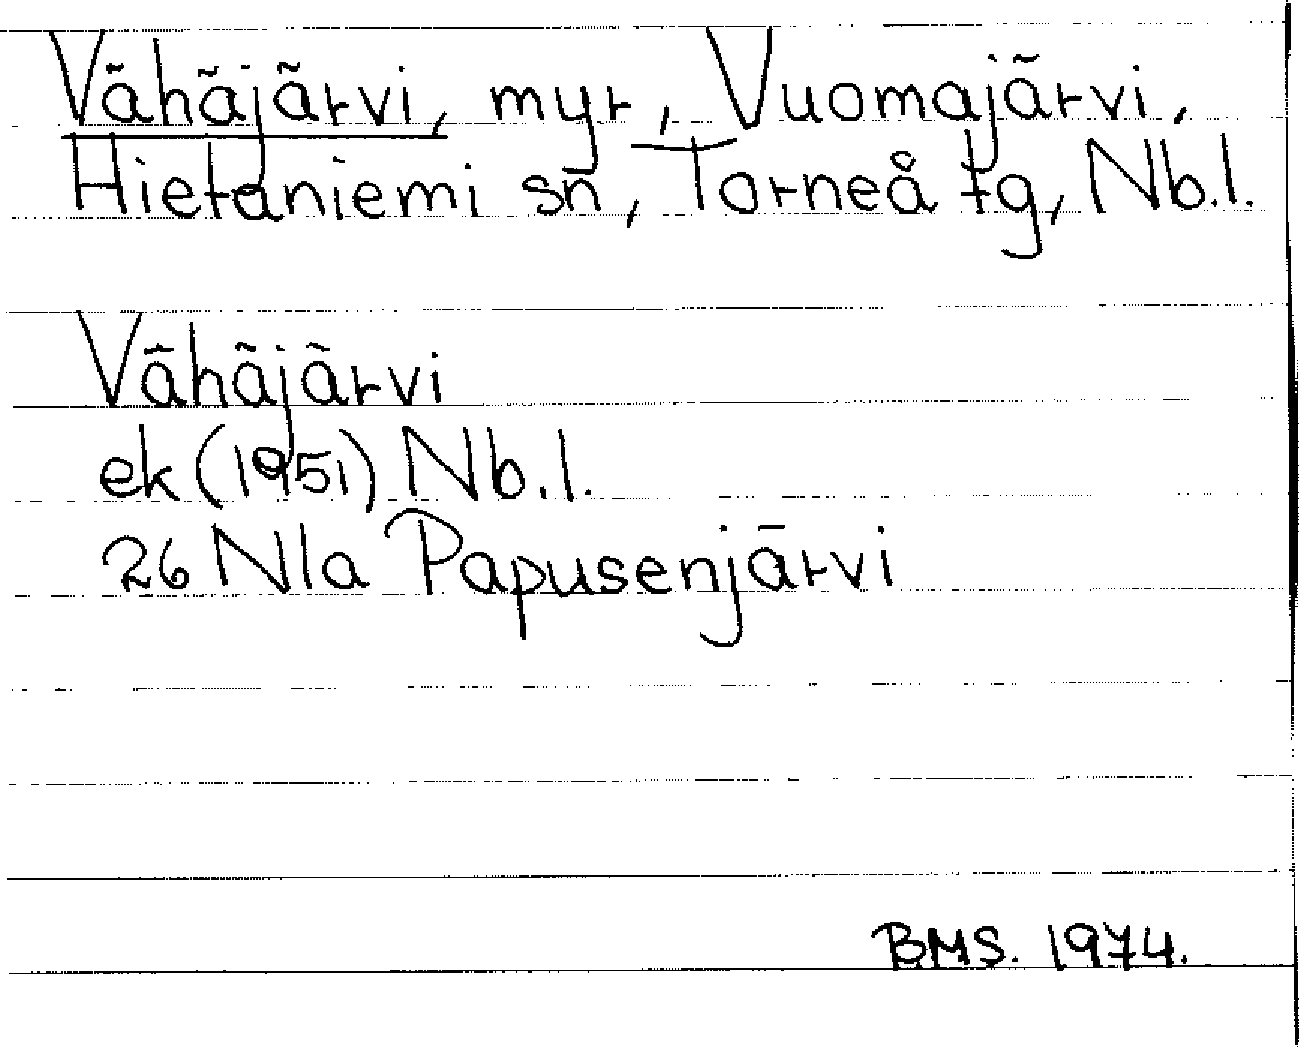 Vähäjärvi, myr, Vuomajärvi,
Hietaniemi sn, Torneå tg, Nb.l.
Vähäjärvi
ek (1951) Nb.l.
26 Nla Papusenjärvi
BMS. 1974.